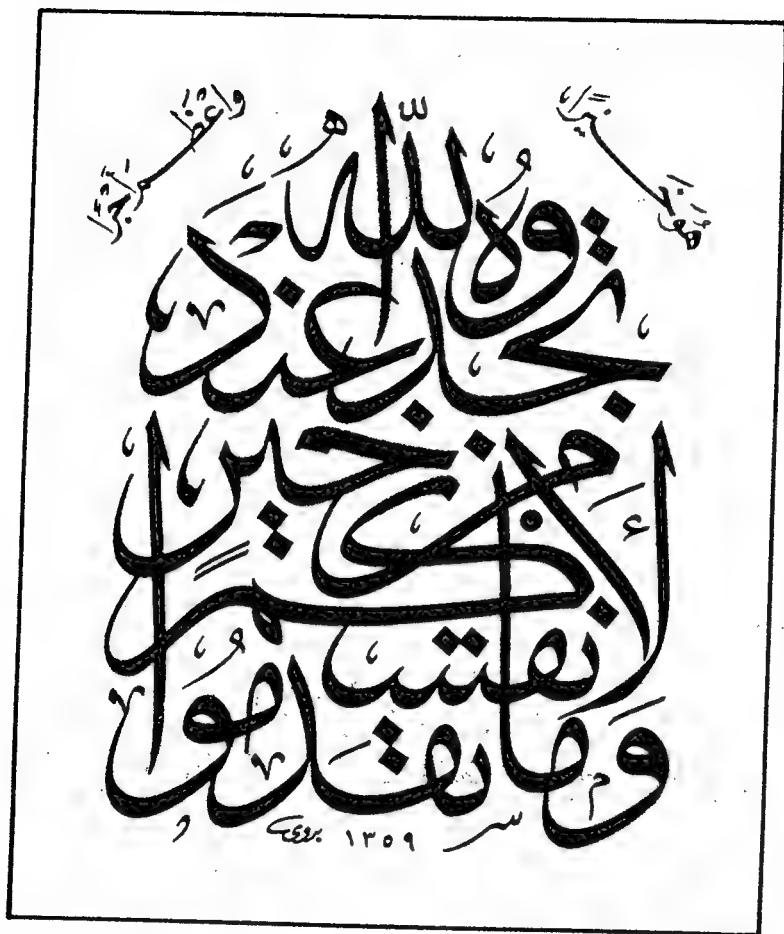 وَمَا تُقَدِّمُوا
لِأَنفُسِكُم
مِّنْ خَيْرٍ
تَجِدُوهُ عِندَ اللَّهِ
هُوَ خَيْرًا
وَأَعْظَمَ أَجْرًا
١٣٥٩